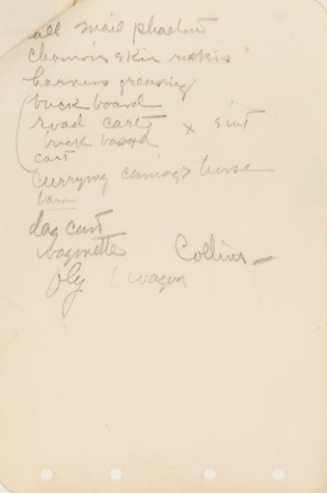 all mail phaeton
chamois skin
harness greasing
buck board
road cart x
buck board
cart
currying carriage horse
barn
dog cart
wagonette Collins
fly wagon